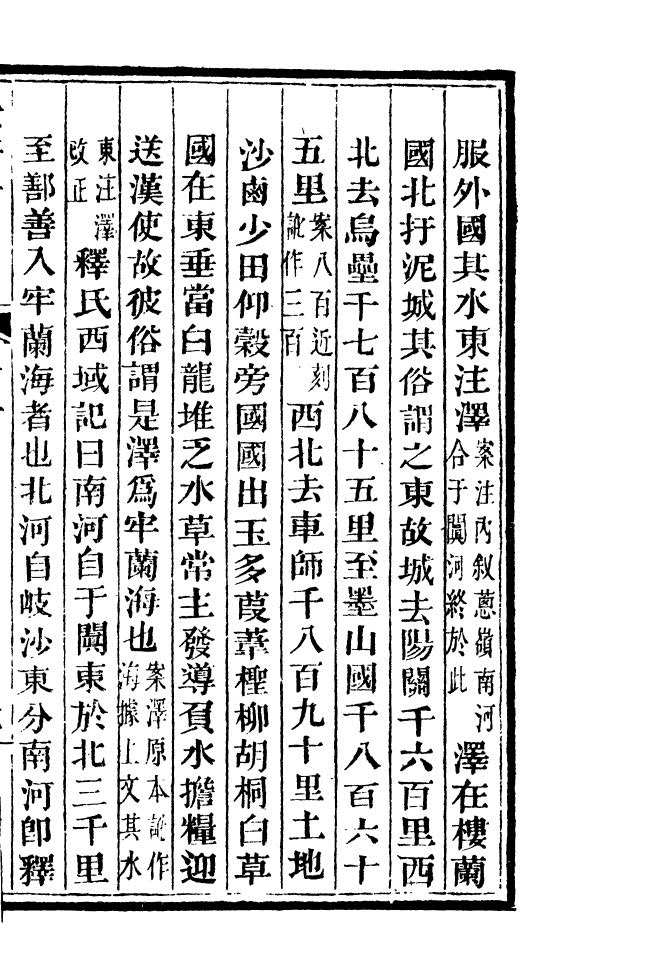 服外國其水東注澤案注內叙蔥嶺南河合于闐河終於此澤在樓蘭
國北扜泥城其俗謂之東故城去陽關千六百里西
北去烏壘千七百八十五里至墨山國千八百六十
五里案八百近刻訛作三百西北去車師千八百九十里土地
沙鹵少田仰穀旁國國出玉多葭葦檉柳胡桐白草
國在東垂當白龍堆乏水草常主發導負水擔糧迎
送漢使故彼俗謂是澤爲牢蘭海也案澤原本訛作海據上文其水
東注澤改正釋氏西域記曰南河自于闐東於北三千里
至鄯善入牢蘭海者也北河自岐沙東分南河卽釋